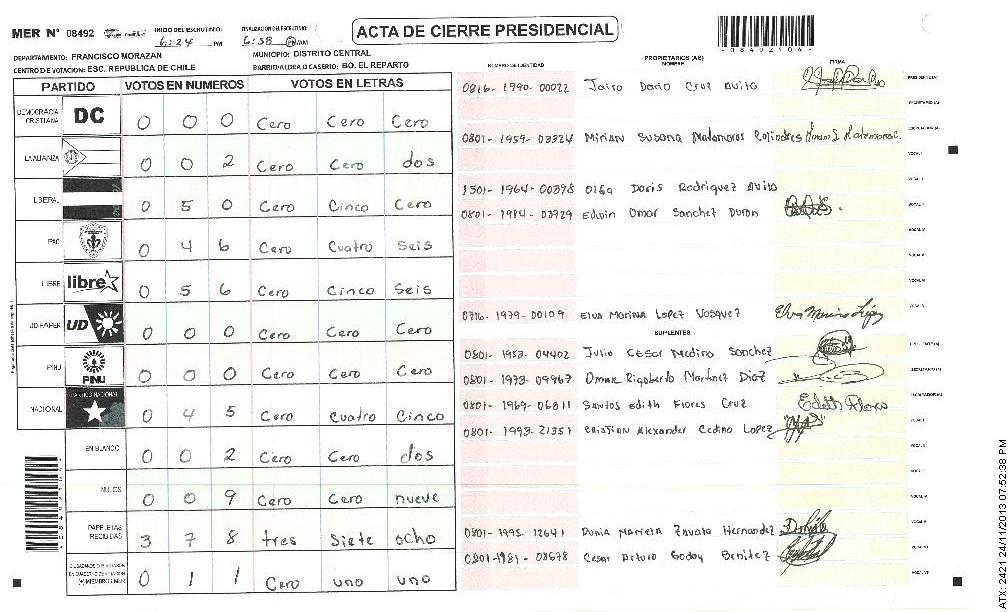 MER N° 08492
INICIO DEL ESCRUTINIO: 6:24 PM
FINALIZACION DEL ESCRUTINIO: 6:38 PM/AM
ACTA DE CIERRE PRESIDENCIAL
08492104
DEPARTAMENTO: FRANCISCO MORAZAN
MUNICIPIO: DISTRITO CENTRAL
CENTRO DE VOTACION: ESC. REPUBLICA DE CHILE
BARRIO/ALDEA O CASERIO: BO. EL REPARTO
PARTIDO VOTOS EN NUMEROS VOTOS EN LETRAS
DEMOCRACIA CRISTIANA DC 0 0 0 Cero Cero Cero
LA ALIANZA 0 0 2 Cero Cero dos
LIBERAL 0 5 0 Cero Cinco Cero
PAC 0 4 6 Cero Cuatro Seis
LIBRE libre 0 5 6 Cero Cinco Seis
UD-FAPER UD 0 0 0 Cero Cero Cero
PINU PINU 0 0 0 Cero Cero Cero
NACIONAL PARTIDO NACIONAL 0 4 5 Cero Cuatro Cinco
EN BLANCO 0 0 2 Cero Cero dos
NULOS 0 0 9 Cero Cero nueve
PAPELETAS RECIBIDAS 3 7 8 tres Siete ocho
CIUDADANOS QUE VOTARON EN CUADERNO DE VOTACION (+) MIEMBROS MER 0 1 1 Cero uno uno
NUMERO DE IDENTIDAD PROPIETARIOS (AS) NOMBRE FIRMA
0816-1990-00022 Jairo Dario Cruz Avila PRESIDENTE(A)
SECRETARIO(A)
0801-1959-03324 Mirian Susana Matamoros ESCRUTADOR(A)
VOCAL I
1501-1964-00398 Olga Doris Rodriguez Avila
0801-1984-03729 Edwin Omar Sanchez Duron
0716-1979-00109 Elva Marina Lopez Vasquez Elva Marina López
SUPLENTES
0801-1953-04402 Julio Cesar Medina Sanchez
0801-1973-09967 Omar Rigoberto Martinez Diaz
0801-1969-06811 Santos Edith Flores Cruz Edith Flores
0801-1993-21351 Cristian Alexander Cedino Lopez
0801-1995-12641 Dunia Marieta Zavala Hernandez
0801-1981-03678 Cesar Arturo Godoy Benitez
ATX: 2421 24/11/2013 07:52:38 PM